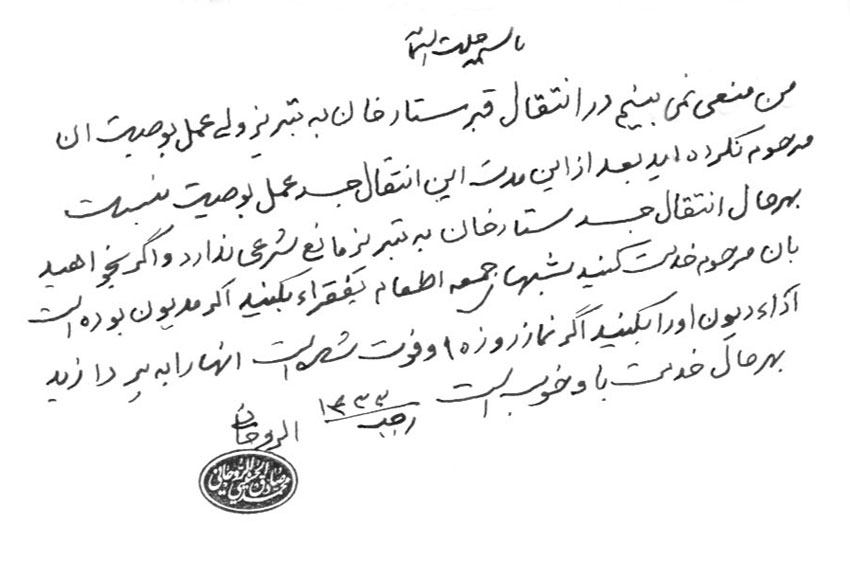 باسمه جلت اسمائه
من منعی نمی بینم در انتقال قبر ستارخان به تبریز ولی عمل بوصیت ان
مرحوم نکرده اید بعد از این مدت این انتقال جسد عمل بوصیت نیست
بهرحال انتقال جسد ستارخان به تبریز مانع شرعی ندارد و اگر بخواهید
بان مرحوم خدمت کنید شبهای جمعه اطعام بفقراء بکنید اگر مدیون بوده است
اداء دیون او را بکنید اگر نماز روزه و فوت شده است انها را به پردازید
بهرحال خدمت باو خوب است
رجب ۱۴۳۳
الروحانی
محمد صادق الحسینی الروحانی